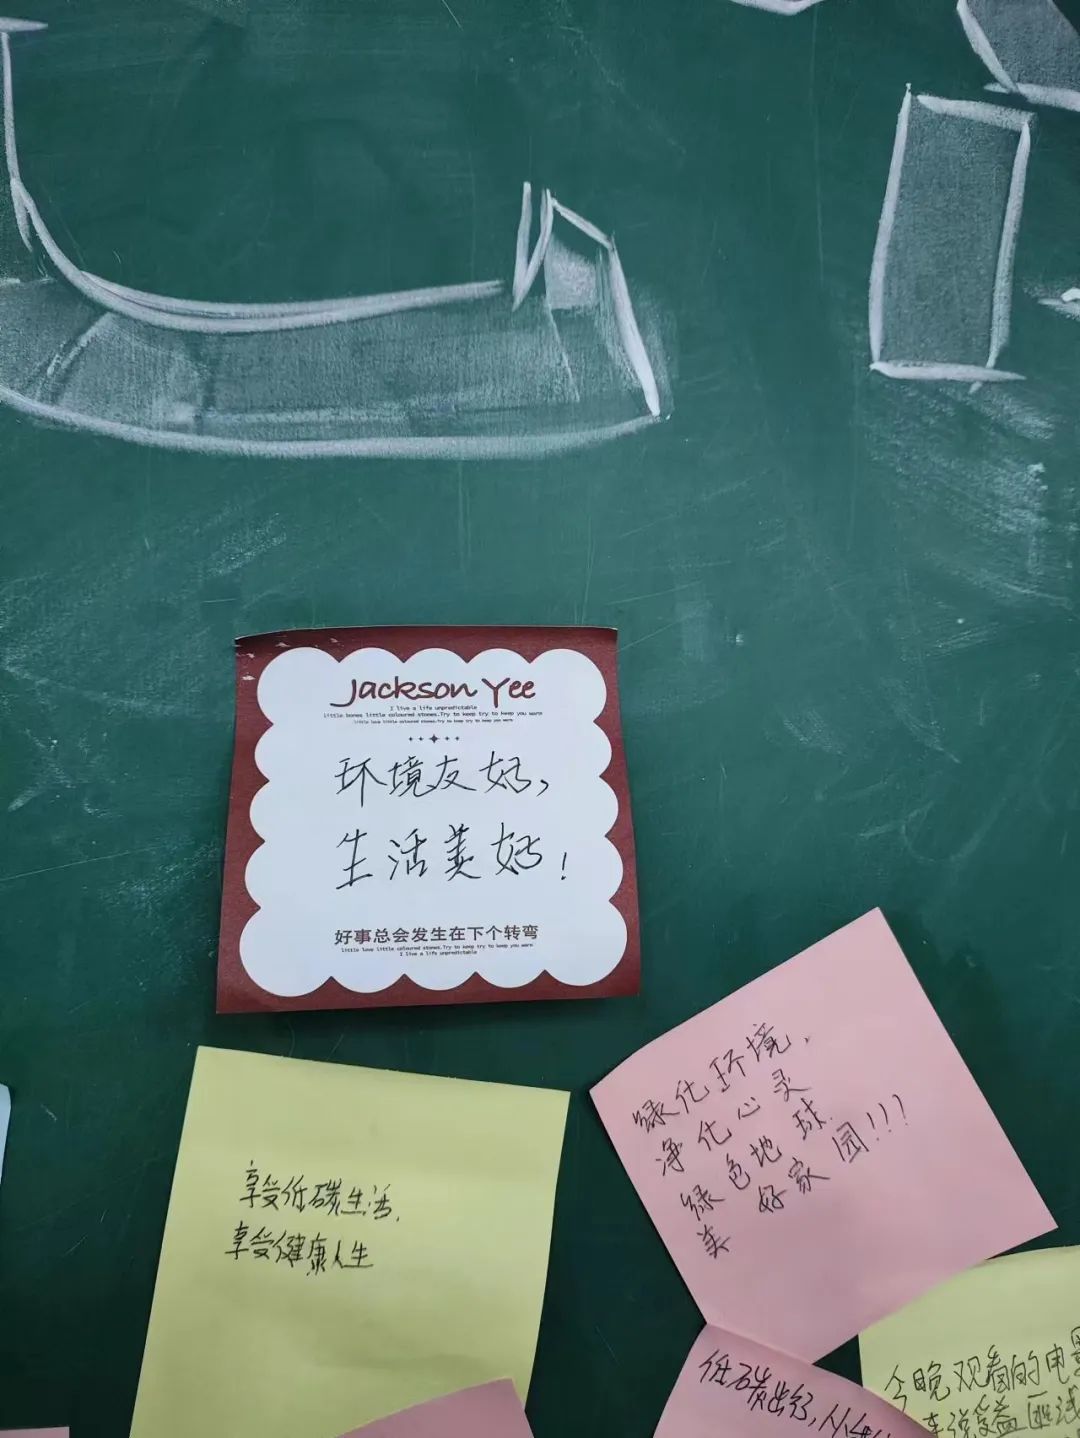 Jackson Yee
I live a life unpredictable
little bones little coloured stones.Try to keep try to keep you warm
little love little coloured stones.Try to keep try to keep you warm
环境友好,
生活美好!
好事总会发生在下个转弯
little love little coloured stones.Try to keep try to keep you warm
I live a life unpredictable
绿化环境,
净化心灵
绿色地球
美好家园!!!
享受低碳生活,
享受健康人生
低碳出行,从
今晚观看的电